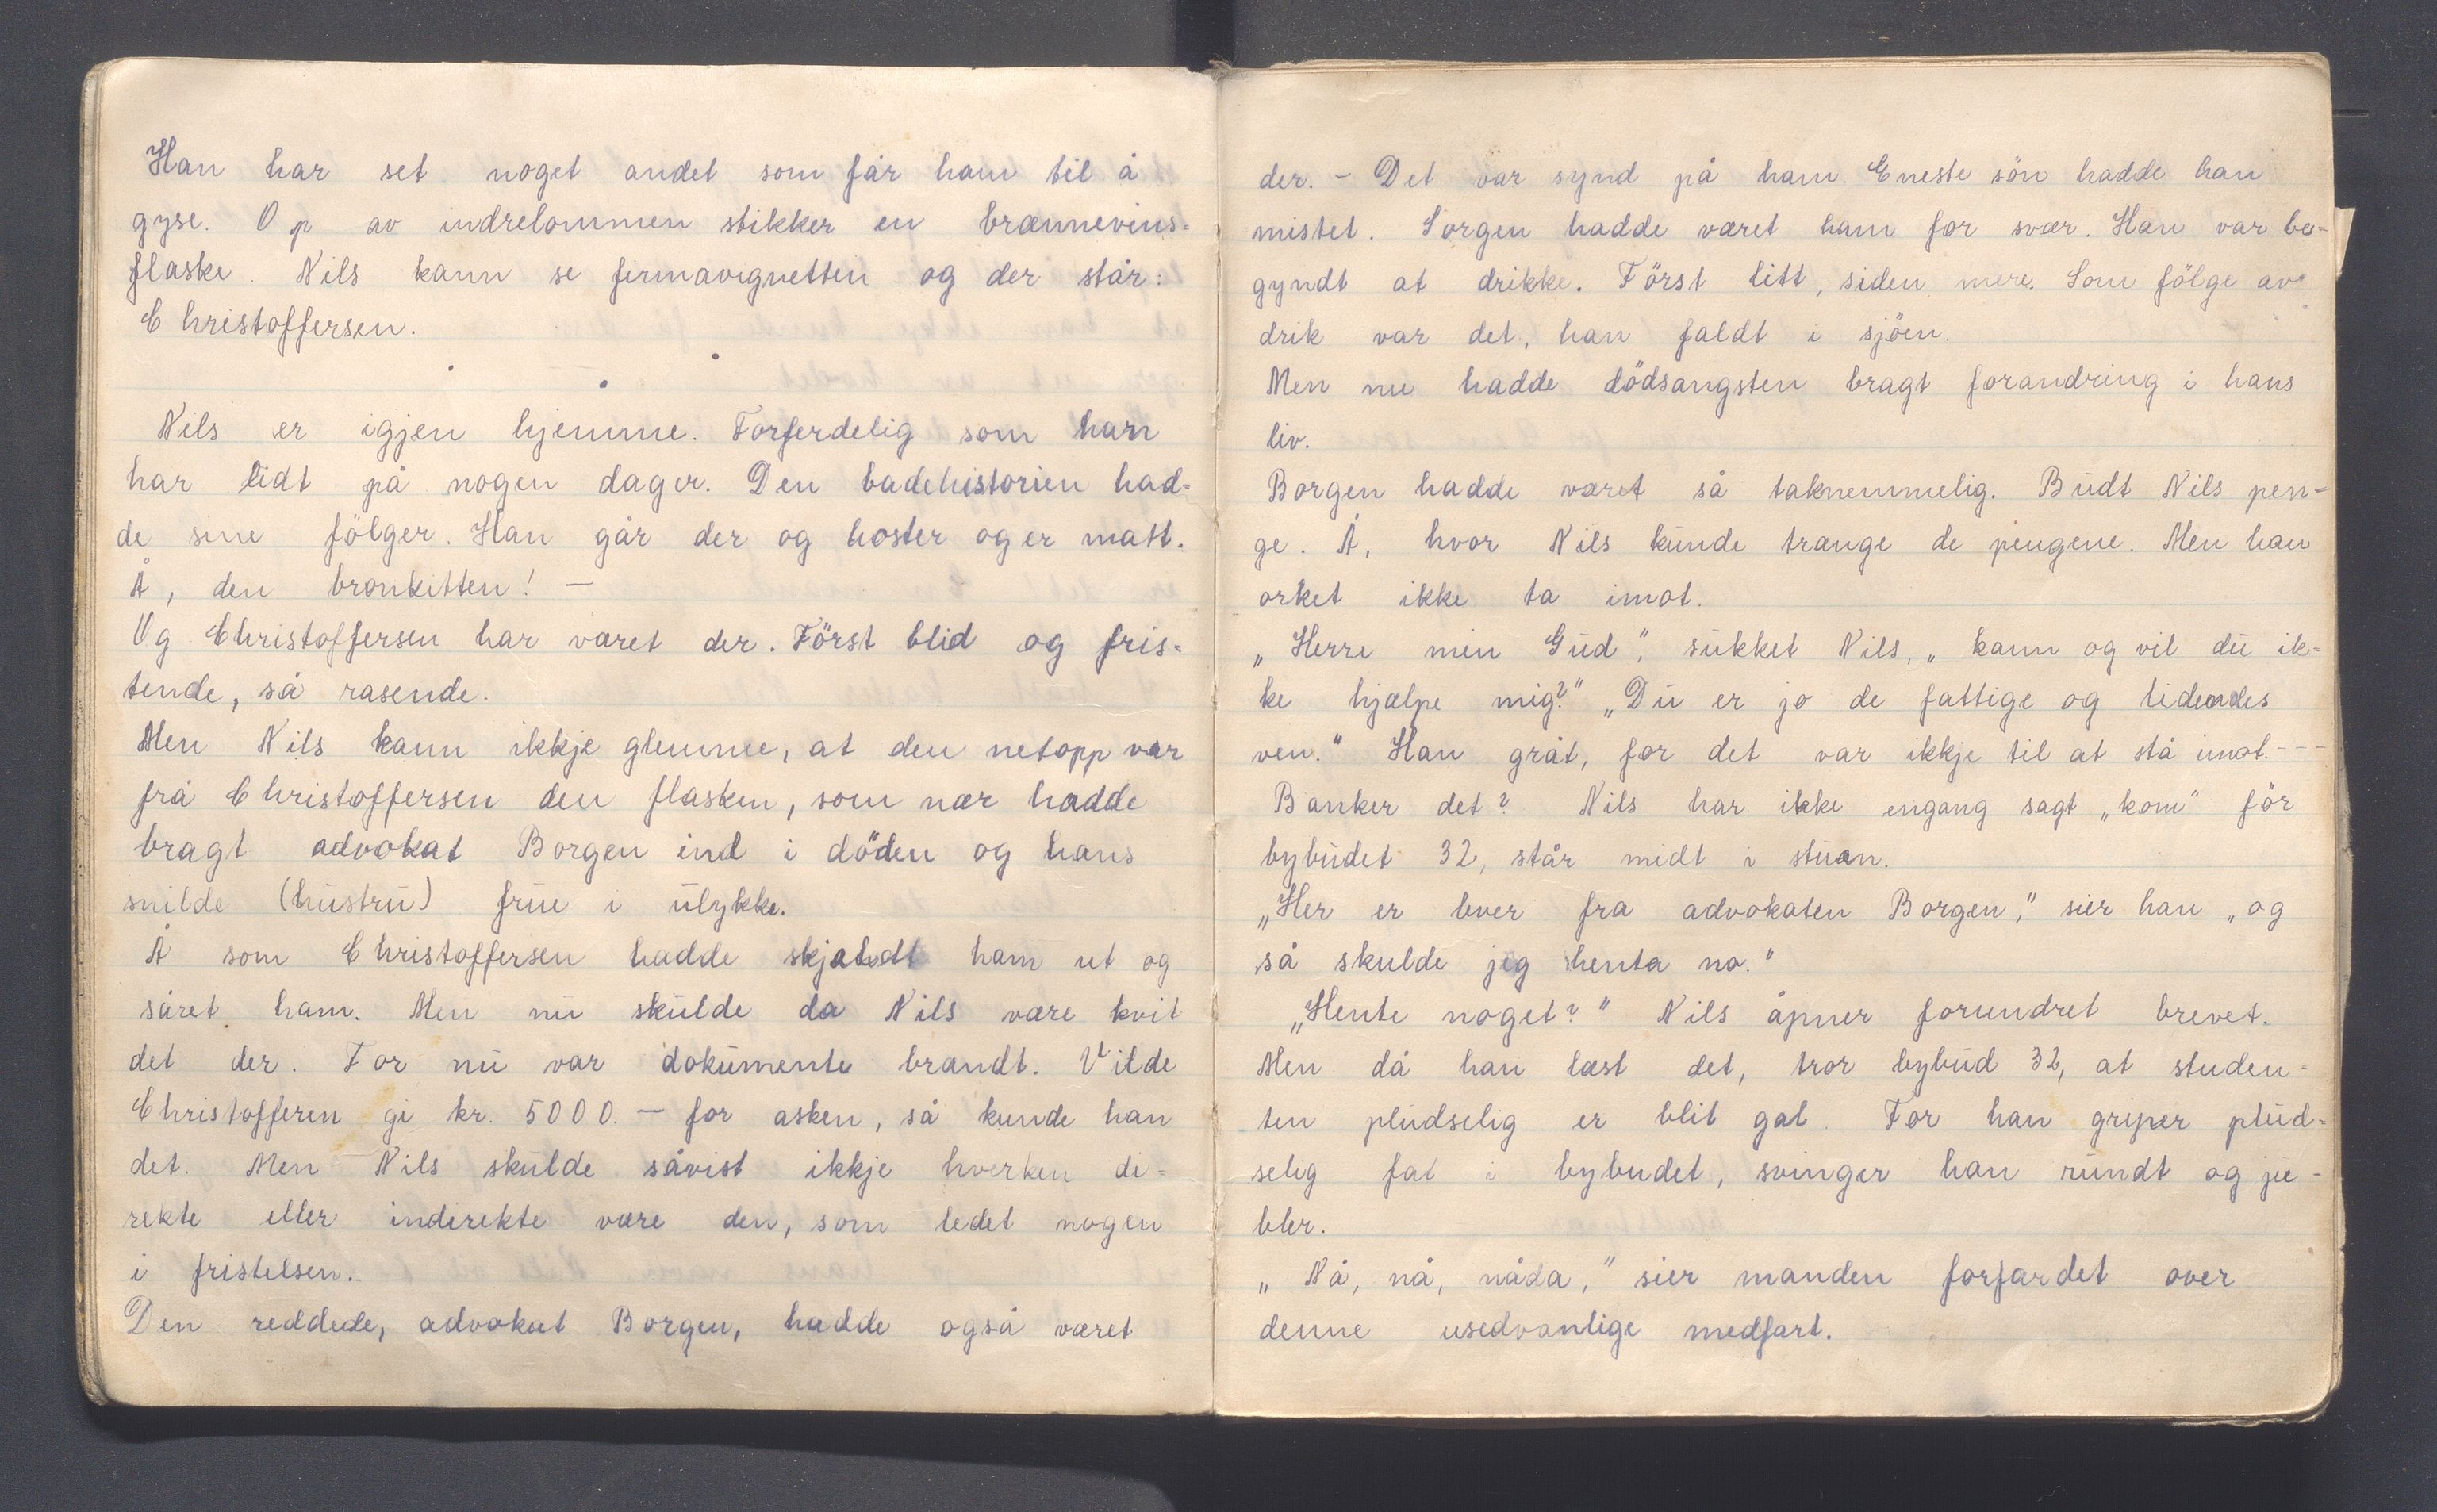 Han har set noget andet som får ham til å
gyse. Op av indrelommen stikker en brænnevins=
flaske. Nils kann se firmavignetten og der står:
Christoffersen.
Nils er igjen hjemme. Forferdelig som han
har lidt på nogen dager. Den badehistorien had=
de sine fölger. Han går der og hoster og er matt.
Å, den bronkitten! –
Og Christoffersen har været der. Först blid og fris=
tende, så rasende.
Men Nils kann ikkje glemme, at den netopp var
frå Christoffersen den flasken, som nær hadde
bragt advokat Borgen ind i döden og hans
snilde (hustru) frue i ulykke.
Å som Christoffersen hadde skjældt ham ut og
såret ham. Men nu skulde da Nils være kvit
det der. For nu var dokumente brændt. Vilde
Christofferen gi kr. 5000.– for asken, så kunde han
det. Men Nils skulde såvist ikkje hverken di=
rekte eller indirekte være den, som ledet nogen
i fristelsen.
Den reddede, advokat Borgen, hadde også været
der. – Det var synd på ham. Eneste sön hadde han
mistet. Sorgen hadde været ham for svær. Han var be-
gyndt at drikke. Först litt, siden mere. Som fölge av
drik var det, han faldt i sjöen.
Men nu hadde dödsangsten bragt forandring i hans
liv.
Borgen hadde været så taknemmelig. Budt Nils pen-
ge. Å, hvor Nils kunde trænge de pengene. Men han
orket ikke ta imot.
„Herre min Gud", sukket Nils, „kann og vil du ik=
ke hjælpe mig?" „Du er jo de fattige og lidendes
ven." Han gråt, for det var ikkje til at stå imot.---
Banker det? Nils har ikke engang sagt „kom" för
bybudet 32, står midt i stuen.
„Her er bver fra advokaten Borgen," sier han „og
så skulde jeg henta no."
„Hente noget?" Nils åpner forundret brevet.
Men då han læst det, tror bybud 32, at studen-
ten pludselig er blit gal. For han griper plud=
selig fat i bybudet, svinger han rundt og ju-
bler.
„Nå, nå, nåda," sier manden forfærdet over
denne usedvanlige medfart.